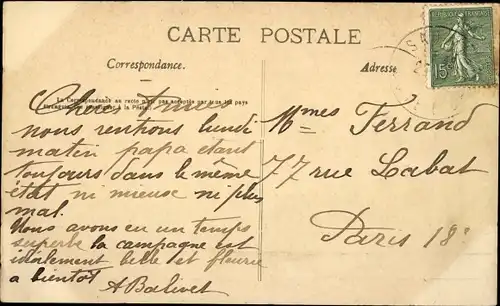 CARTE POSTALE
Correspondance.
Adresse
La Correspondance au recto n'est pas acceptée par tous les pays
étrangers. (Se renseigner à la Poste)
REPUBLIQUE FRANCAISE
15c
Chers Amies
nous rentrons lundi
matin papa étant
toujours dans le même
état ni mieuse ni plus
mal.
Nous avons eu un temps
superbe la campagne est
idéalement belle et fleurie
a bientôt
A Balivet
Mmes Ferrand
77 rue Labat
Paris 18e